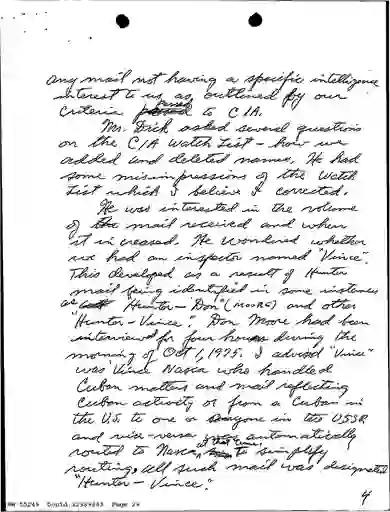 any mail not having a specific intelligence
interest to us as outlined by our
criteria passed to CIA.
Mr. Dick asked several questions
on the CIA Watch List - how we
added and deleted names. He had
some misimpressions of the Watch
List which I believe I corrected.
He was interested in the volume
of the mail received and when
it increased. He wondered whether
we had an inspector named "Vince".
This developed as a result of Hunter
mail being identified in some instances
as "Hunter-Don" (MOORE) and other
"Hunter-Vince". Don Moore had been
interviewed for four hours during the
morning of Oct 1, 1975. I advised "Vince"
was Vince Nasca who handled
Cuban matters and mail reflecting
Cuban activity or from a Cuban in
the U.S. to one or anyone in the USSR
and vice-versa automatically
routed to Nasca to simplify
routing. All such mail was designated
"Hunter-Vince".
4
Page 29